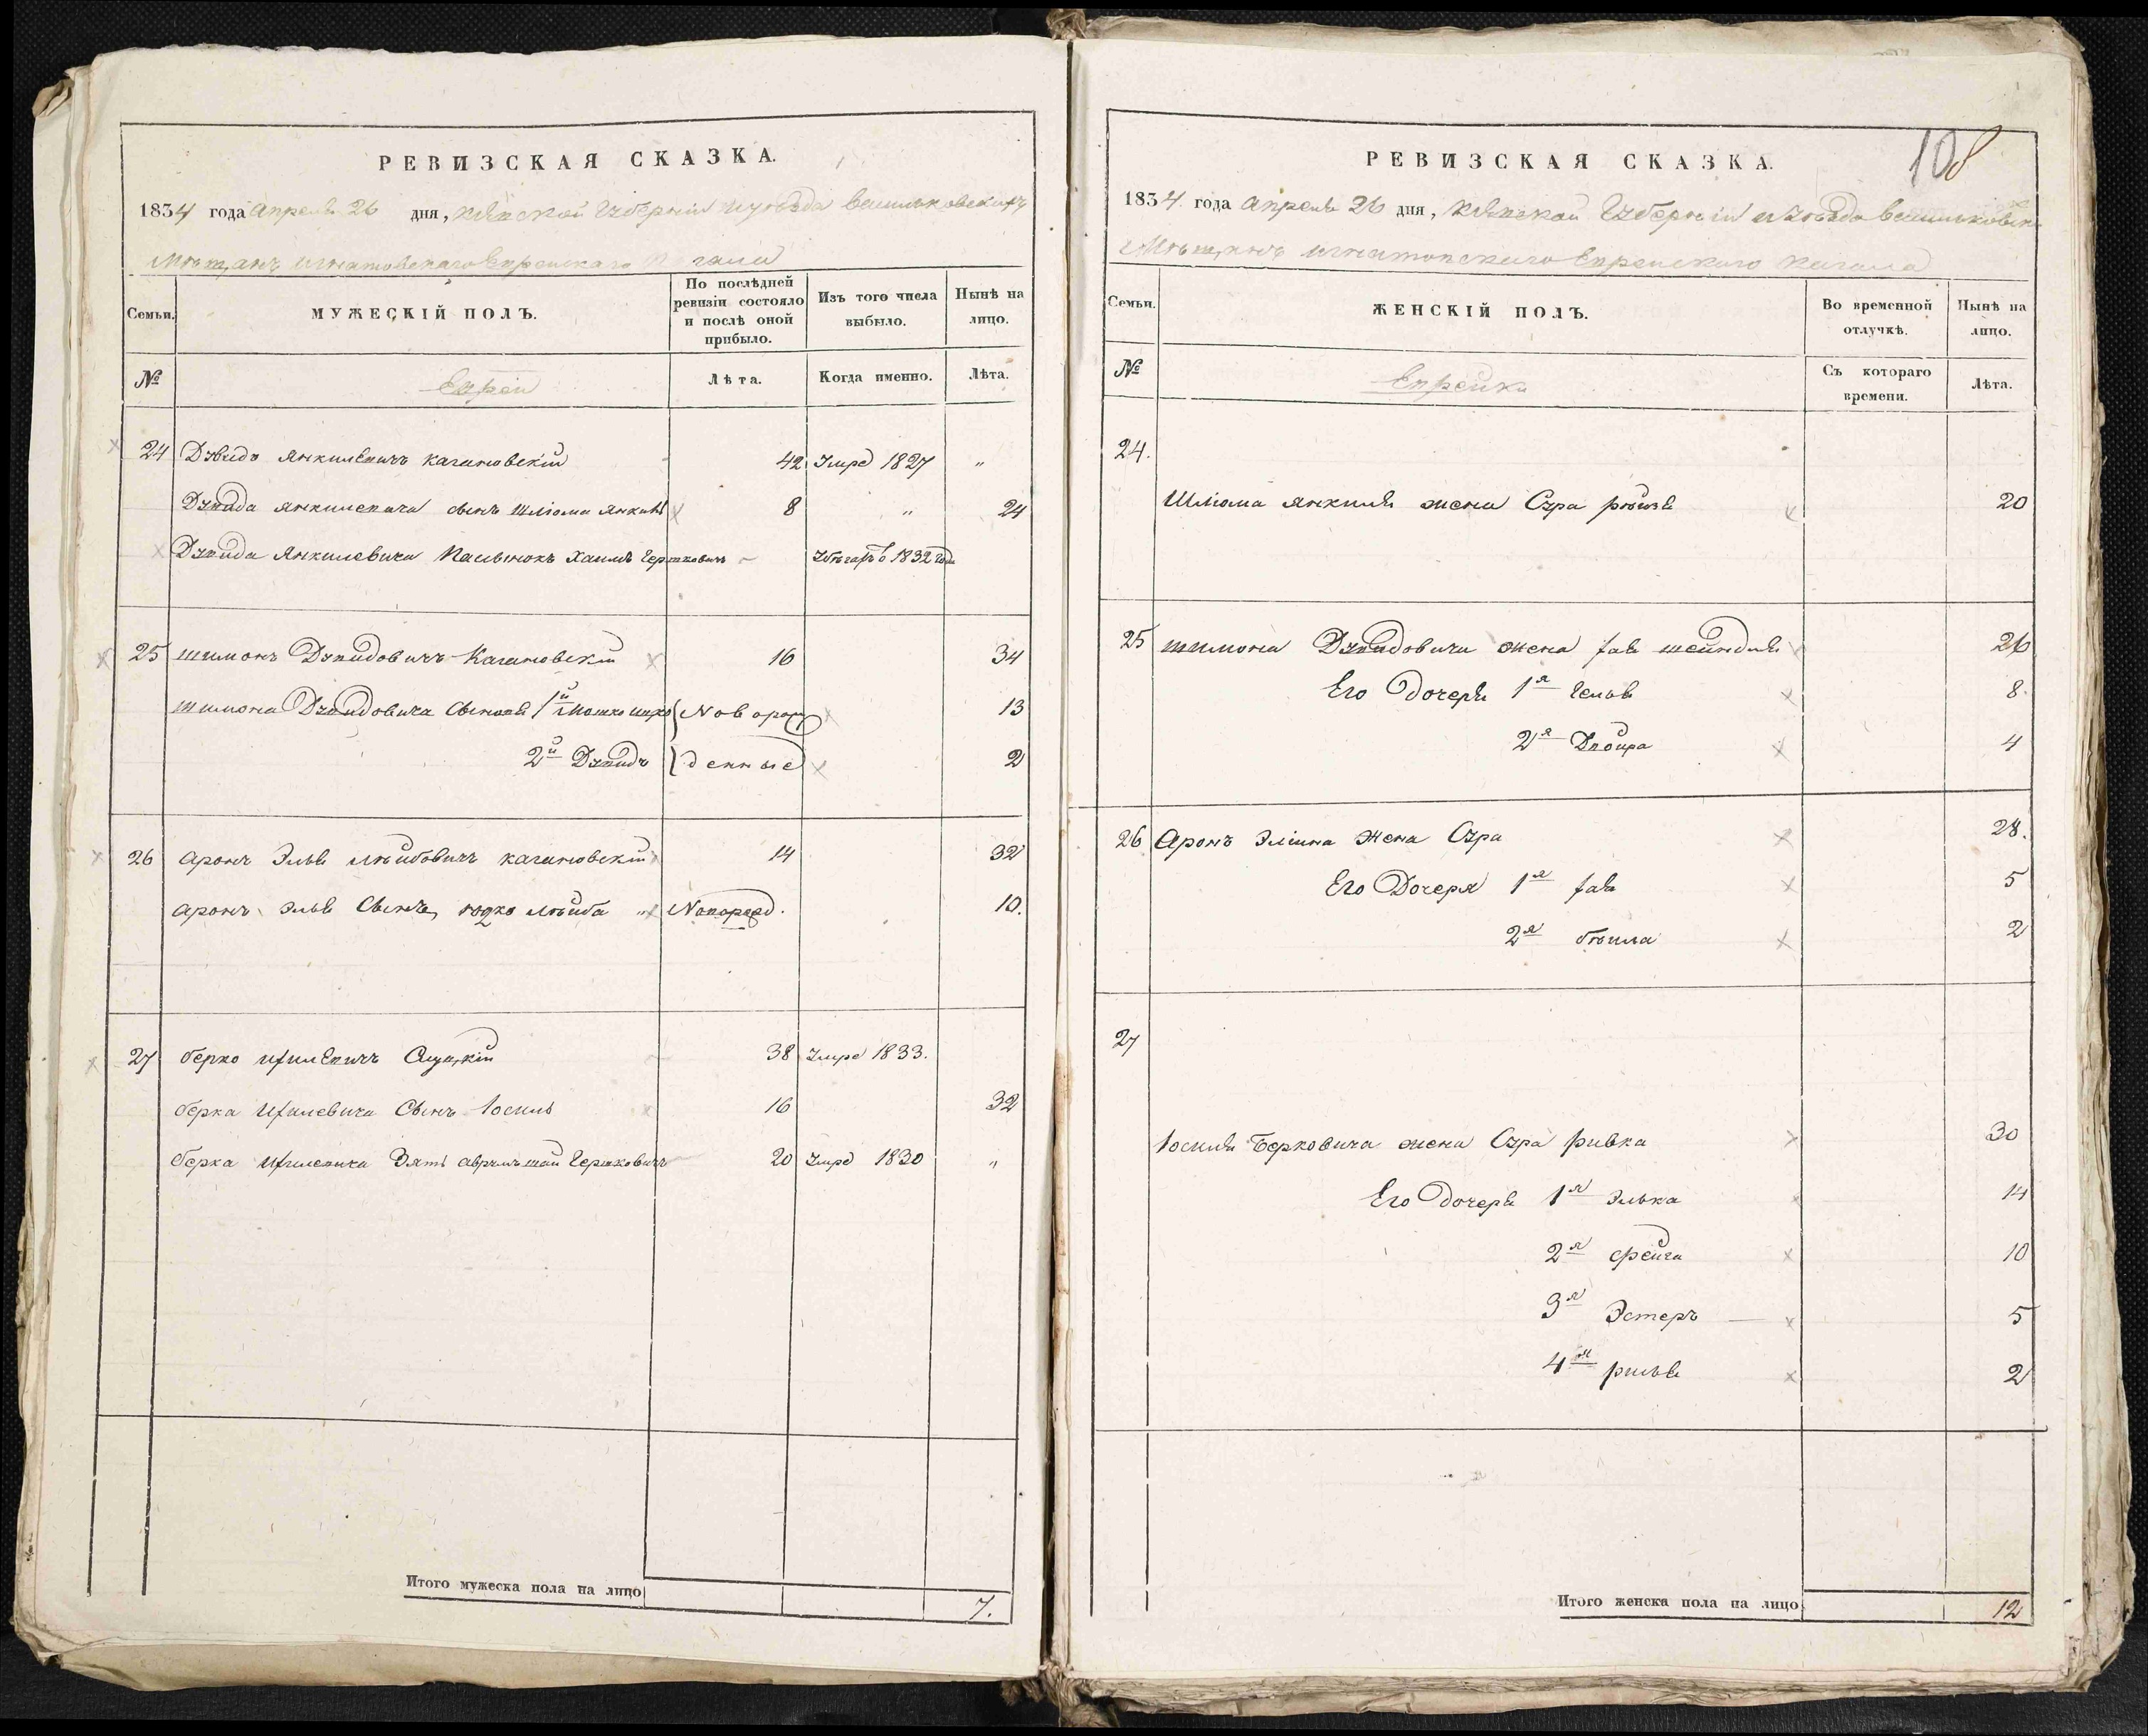 РЕВИЗСКАЯ СКАЗКА.
1834 года Апреля 26 дня, Кіевской Губерніи и уезда васильковскихъ
Мѣщанъ игнатовскаго Еврейскаго кагала
Семьи.
МУЖЕСКІЙ ПОЛЪ.
По послѣдней ревизіи состояло и послѣ оной прибыло.
Изъ того числа выбыло.
Нынѣ на лицо.
№
Евреи
Лѣта.
Когда именно.
Лѣта.
24 Дувидъ Янкилевичъ кагановскій 42 Умре 1827 „
Дувида янкилевича сынъ шліома янкиль 8 „ 24
Дувида Янкилевича Пасынокъ Хаимъ Гершковичъ – 1832 года
25 шимонъ Дувидовичъ Кагановскій 16 34
шимона Дувидовича Сыновя 1й Мошко { Новорож 13
2й Дувидъ { денные 2
26 Аронъ Эльв лѣибовичъ кагановскій 14 32
Аронъ Эльв Сынъ, юдко лѣйба „ Новорожд. 10.
27 берко ицилевичъ Слуцкій 38 Умре 1833.
берка ицилевича Сынъ Іосиль 16 32
берка ицилевича Зять аврумъ шай Гершковичъ 20 Умре 1830 „
Итого мужеска пола на лицо 7.
108
РЕВИЗСКАЯ СКАЗКА.
1834 года Апреля 26 дня, Кіевской Губерніи и Уезда васильковскихъ
Мѣщанъ игнатовскаго Еврейскаго кагала
Семьи.
ЖЕНСКІЙ ПОЛЪ.
Во временной отлучкѣ.
Нынѣ на лицо.
№
Еврейки
Съ котораго времени.
Лѣта.
24.
Шліома янкиля жена Сура рѣйзя 20
25 шимона Дувидовича жена хая шейндля 26
Его Дочеря 1я Геля 8.
2я Двойра 4
26 Аронъ Эліина Жена Сура 28.
Его Дочеря 1я хая 5
2я бѣила 2
27
Іосиля Берковича жена Сура ривка 30
Его дочеря 1я Элька 14
2я фрейга 10
3я Эстеръ 5
4я риля 2
Итого женска пола на лицо 12